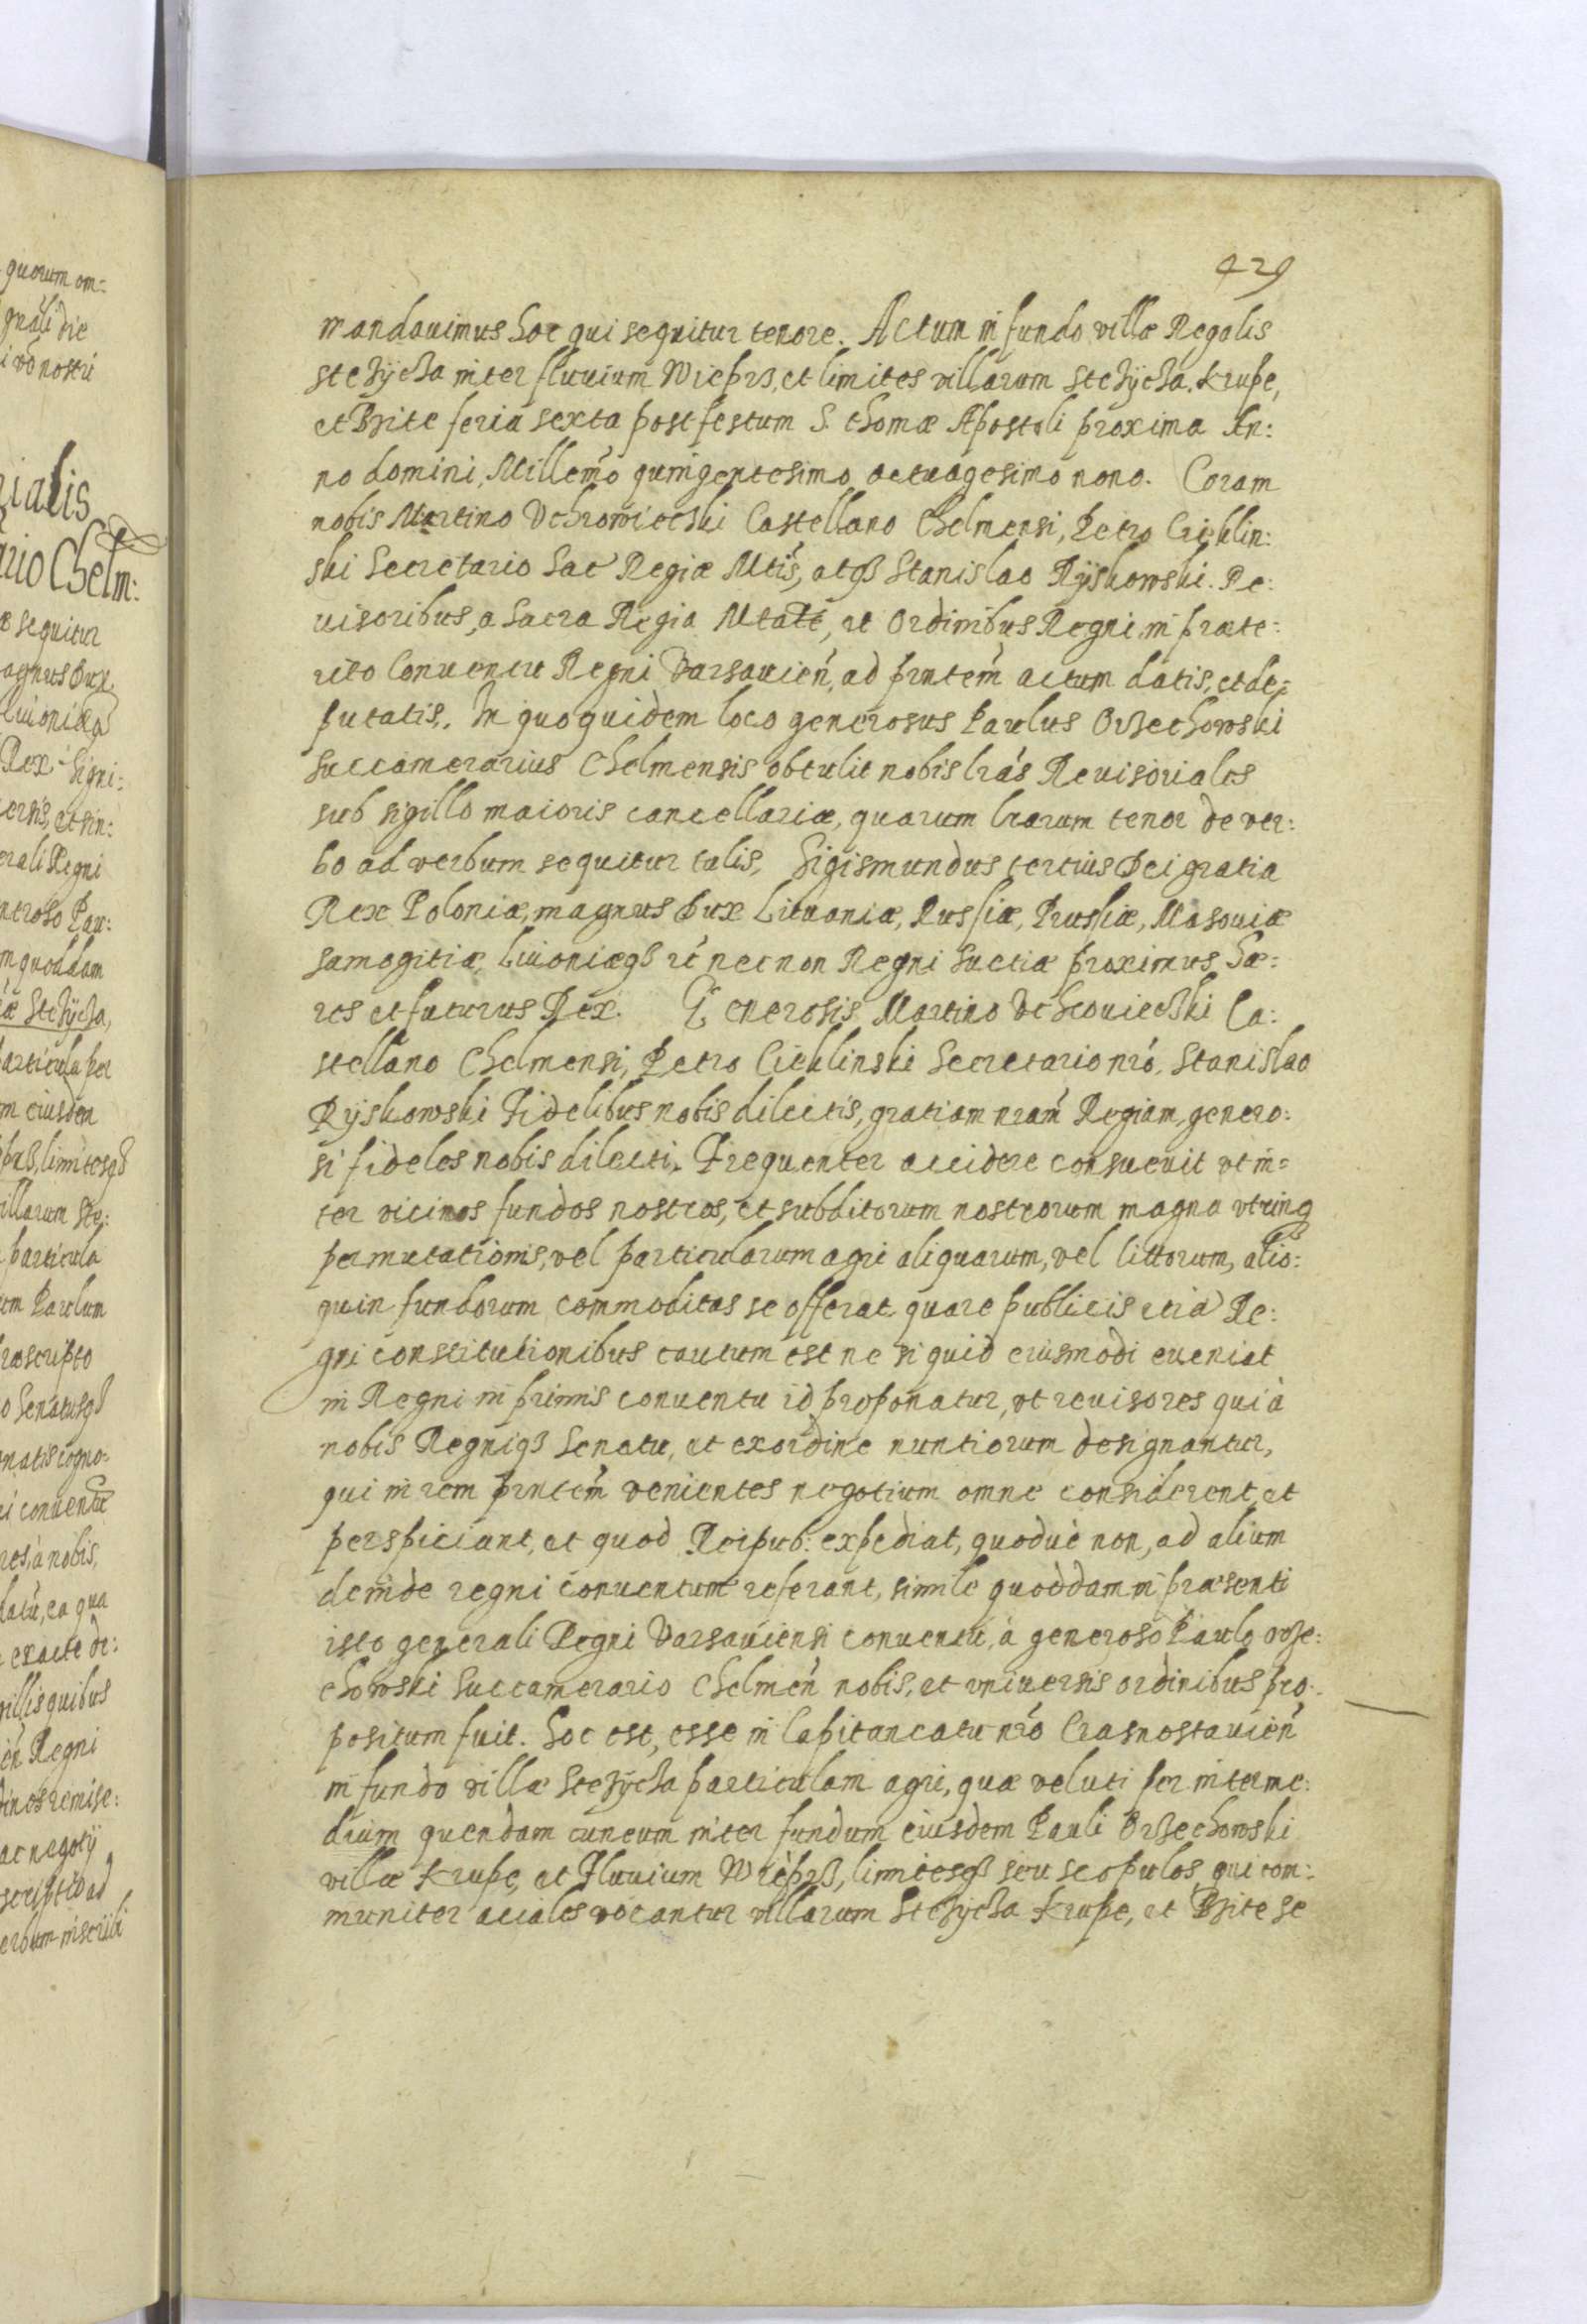 quorum om=
gnali die
i vo nostri
rialis
ario Chelm:
æ sequitur
agnus Dux
Liuoniæq
Rex Signi:
ersis, et sin:
erali Regni
neroso Pau:
m quoddam
æ Stezÿcza,
particula per
m eiusdem
limitesqß
illarum Ste:
particula
um Paulum
ræscripto
o Senatusqß
natis cogno:
i conuentu
res, a nobis,
ea qua
exacte de:
gillis quibus
ień Regni
dines remise:
ac negotÿ
scriptio ad
erbum inscribi
429
mandauimus hoc qui sequitur tenore. Actum in fundo villæ Regalis
stezÿcza inter fluuium Wieprß, et limites villarum stezÿcza. Krupe,
et Bzite feria sexta post festum S. thomæ Apostoli proxima An:
no domini, Millemo quingentesimo octuagesimo nono. Coram
nobis Martino Vchrowiecski Castellano Chelmensi, Petro Cieklin:
ski Secretario Sac Regiæ Mtis, atqß Stanislao Rÿskowski. Re:
uisoribus, a Sacra Regia Mtate, et Ordinibus Regni in præte:
rito Conuentu Regni Varsauień, ad prntem actum datis, et de=
putatis. In quo quidem loco generosus Paulus Orzechowski
Succamerarius Chelmensis obtulit nobis lras Reuisoriales
sub sigillo maioris cancellariæ, quarum lrarum tenor de ver:
bo ad verbum sequitur talis, Sigismundus tertius Dei gratia
Rex Poloniæ, magnus Dux Lituaniæ, Russiæ, Prussiæ, Masouiæ
Samogitiæ, Liuoniæqß rć necnon Regni Suetiæ proximus hæ:
res et futurus Rex. Generosis Martino Vchrouiecski Ca:
stellano Chelmensi, Petro Cieklinski Secretario nro, Stanislao
Rÿskowski Fidelibus nobis dilectis, gratiam nram Regiam, genero:
si fideles nobis dilecti. Frequenter accidere consueuit vt in=
ter vicinos fundos nostros, et subditorum nostrorum magna vtrinqß
permutationis, vel particularum agri aliquarum, vel littorum, alio:
quin fundorum commoditas se offerat quare publicis etia Re:
gni constitutionibus cautum est ne si quid eiusmodi eueniat
in Regni in primis conuentu id proponatur, vt reuisores qui à
nobis Regniqß Senatu, et ex ordine nuntiorum designantur,
qui in rem prntem venientes negotium omne considerent, et
perspiciant, et quod Reipub: expediat, quodue non, ad alium
deinde regni conuentum referant, simile quoddam in præsenti
isto generali Regni Varsauiensi conuentu, à generoso Paulo orze:
chowski Succamerario Chelmeń nobis, et vniuersis ordinibus pro:
positum fuit. hoc est, esse in Capitaneatu nro Crasnostauień
in fundo villæ Stezÿcza particulam agri, quæ veluti per interme:
dium quendam cuneum inter fundum eiusdem Pauli Orzechowski
villæ Krupe, et Fluuium Wieprß, limitesqß seu scopulos, qui com:
muniter aciales vocantur villarum Stezÿcza Krupe, et Bzite se